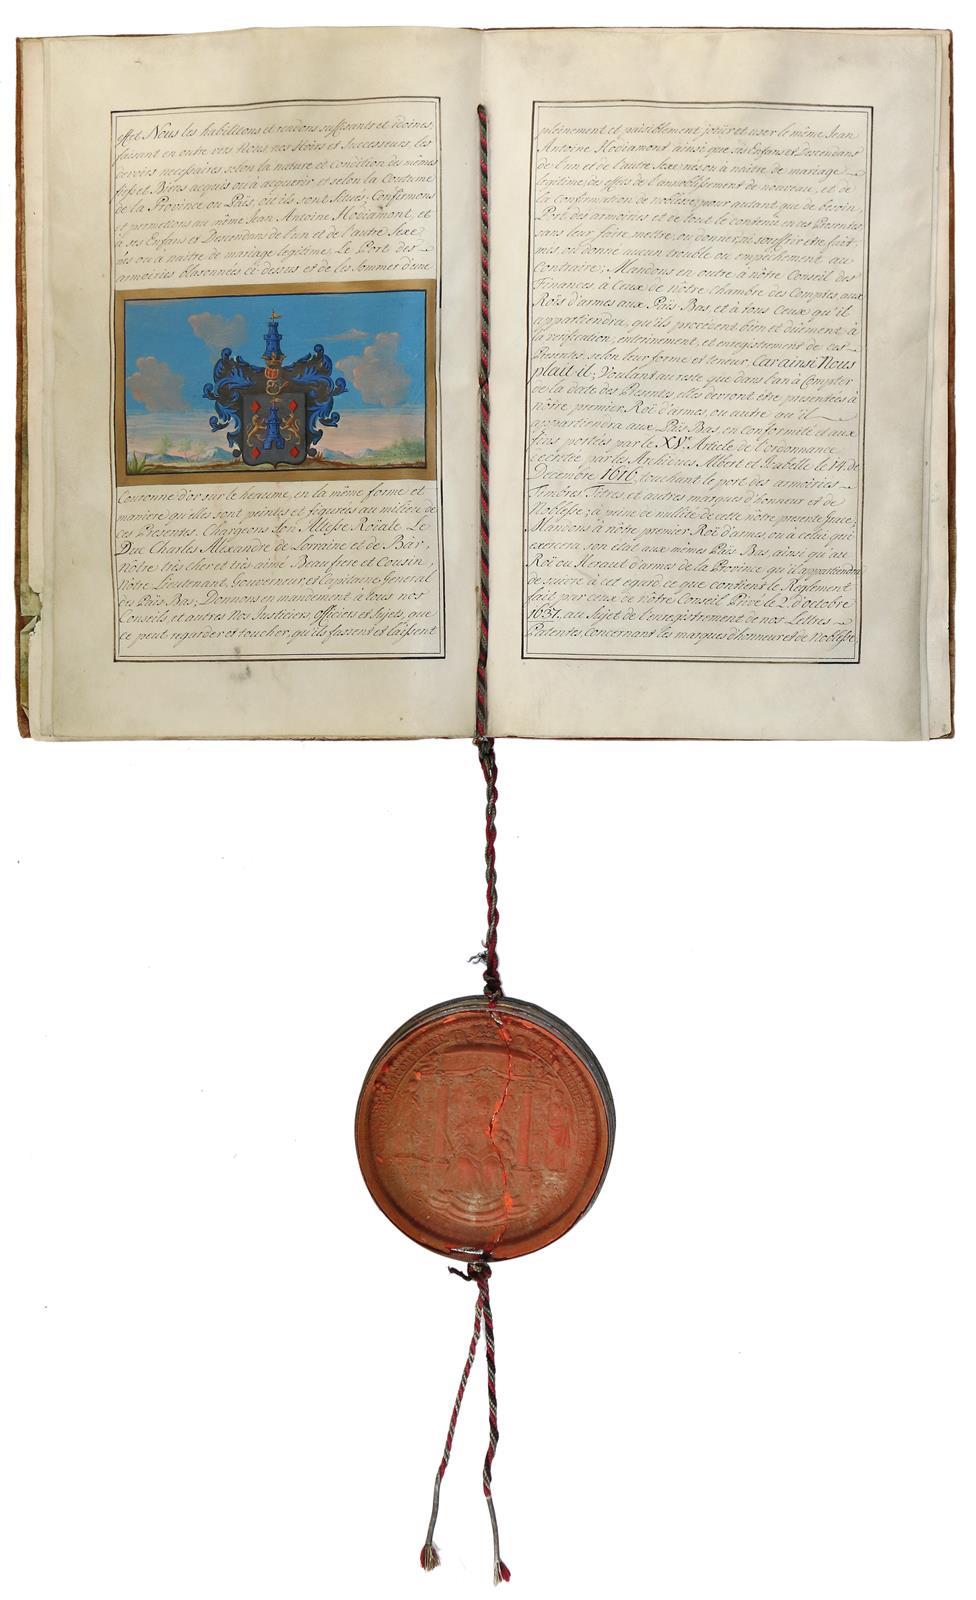 effet Nous les habilitons et rendons suffisants et idoines,
faisant en outre vers Nous, nos Hoirs et Successeurs, les
devoirs necessaires selon la nature et Condition du mêmes
fiefs et Biens acquis ou à acquerir, et selon la Coutume
de la Province ou Païs, où ils sont Situés; Confirmons
et permettons au même Jean Antoine Hodiamont, et
à ses Enfans et Descendans de l'un et de l'autre Sexe
nés ou à naitre de mariage legitime, Le Port des
armoiries blasonnées ci-dessus et de les sommer d'une
Couronne d'or sur le heaume, en la même forme et
maniere qu'elles sont peintes et figurées au milieu de
ces Présentes. Chargeons Son Altesse Roïale Le
Duc Charles Alexandre de Lorraine et de Bàr,
nôtre très cher et très aimé Beaufrere et Cousin,
Nôtre Lieutenant, Gouverneur et Capitaine General
des Païs Bas; Donnons en mandement à tous nos
Conseils et autres Nos Justiciers, officiers et Sujets, que
ce peut regarder et toucher, qu'ils fassent et laissent
pleinement et paisiblement joüir et user le même Jean
Antoine Hodiamont ainsi que ses Enfans et Descendans
de l'un et de l'autre Sexe nés ou à naitre de mariage
legitime, des effets de l'annoblissement de nouveau, et de
la Confirmation de noblesse pour autant que de besoin,
Port des armoiries et de tout le contenu en ces Présentes
sans leur faire, mettre, ou donner, ni souffrir être fait
mis, ou donné aucun trouble ou empêchement au
Contraire; Mandons en outre à nôtre Conseil des
Finances, à Ceux de nôtre Chambre des Comptes, aux
Roïs d'armes aux Païs Bas, et à tous Ceux qu'il
appartiendra, qu'ils procedent bien et düement à
la verification, enterinement, et enregistrement de ces
Présentes, selon leur forme et teneur, Car ainsi Nous
plait-il; Voulant au reste que dans l'an à Compter
de la date des Présentes, elles devront être présentées à
nôtre premier Roï d'armes, ou autre qu'il
appartiendra aux Païs Bas, en conformité et aux
fins portées par le XV.e Article de l'ordonnance
decretée par les Archiducs Albert et Isabelle le 14. de
Decembre 1616, touchant le port des armoiries
Timbres, Titres, et autres marques d'honneur et de
Noblesse, à peine de nullité de cette nôtre presente grace,
Mandons à nôtre premier Roï d'armes, ou à celui qui
exercera son état aux mêmes Païs Bas, ainsi qu'au
Roï ou Heraut d'armes de la Province qu'il appartiendra
de suivre à cet égard, ce que contient le Reglement
fait par ceux de nôtre Conseil Privé le 2. d'octobre
1637. au Sujet de l'enregistrement de nos Lettres
Patentes, Concernant les marques d'honneur et de Noblesse,